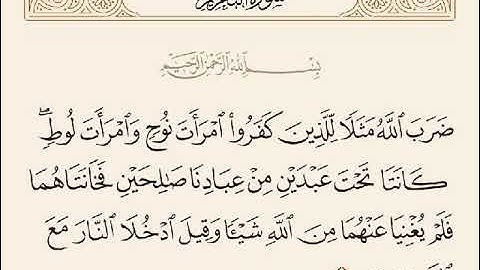 سورة التحريم
بِسْمِ اللَّهِ الرَّحْمَٰنِ الرَّحِيمِ
ضَرَبَ ٱللَّهُ مَثَلًا لِّلَّذِينَ كَفَرُوا۟ ٱمْرَأَتَ نُوحٍ وَٱمْرَأَتَ لُوطٍ ۖ
كَانَتَا تَحْتَ عَبْدَيْنِ مِنْ عِبَادِنَا صَٰلِحَيْنِ فَخَانَتَاهُمَا
فَلَمْ يُغْنِيَا عَنْهُمَا مِنَ ٱللَّهِ شَيْـًٔا وَقِيلَ ٱدْخُلَا ٱلنَّارَ مَعَ